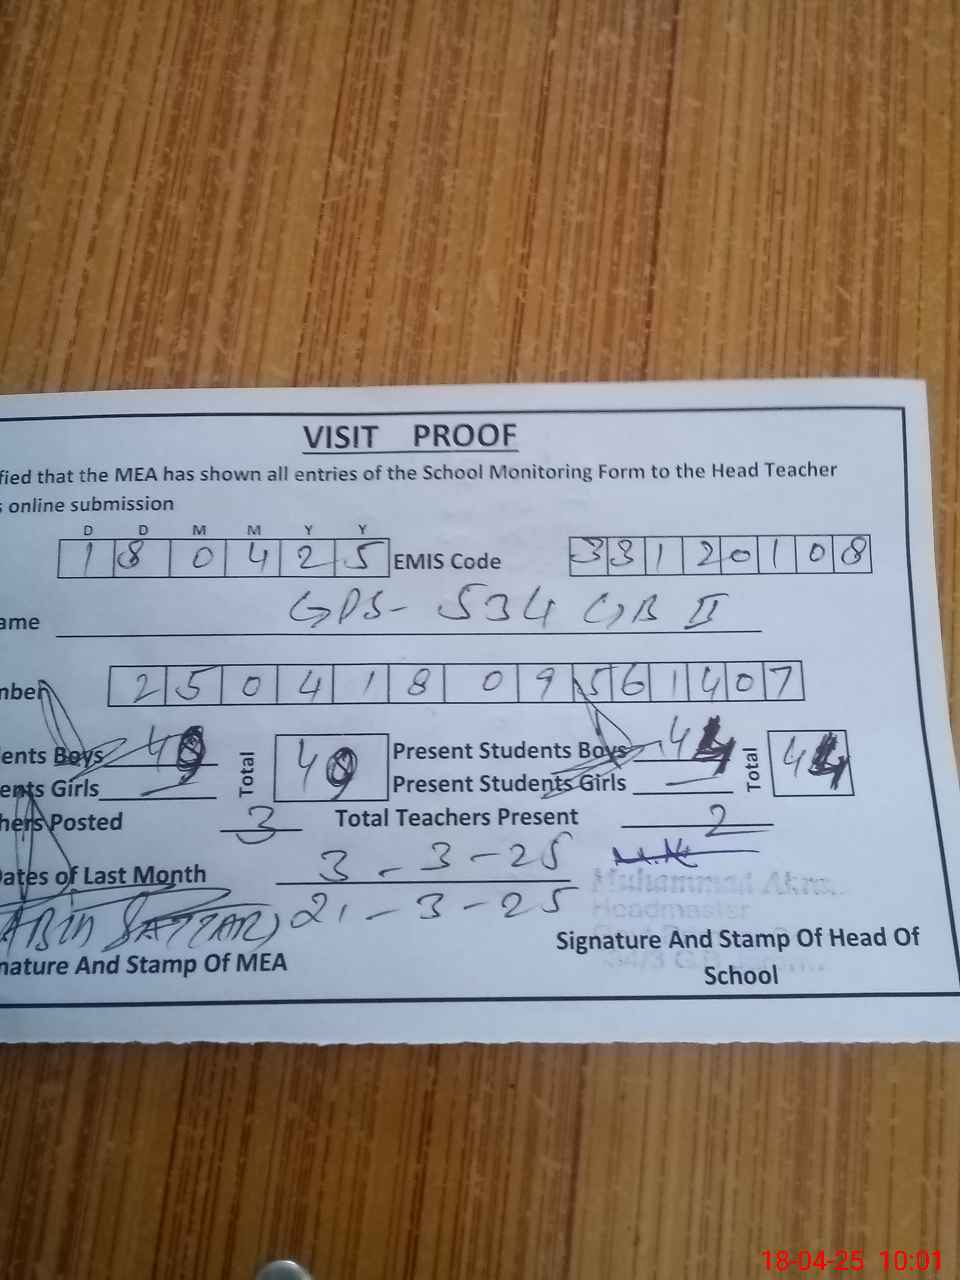 VISIT PROOF
fied that the MEA has shown all entries of the School Monitoring Form to the Head Teacher
s online submission
D D M M Y Y
1 8 0 4 2 5 EMIS Code 3 3 1 2 0 1 0 8
ame GPS- 534 GB II
mber 2 5 0 4 1 8 0 9 5 6 1 4 0 7
ents Boys 49 Total 49 Present Students Boys 44 Total 44
ents Girls Present Students Girls
hers Posted 3 Total Teachers Present 2
Dates of Last Month 3-3-25
21-3-25
Muhammad
Headmaster
nature And Stamp Of MEA
Signature And Stamp Of Head Of
School
18-04-25 10:01